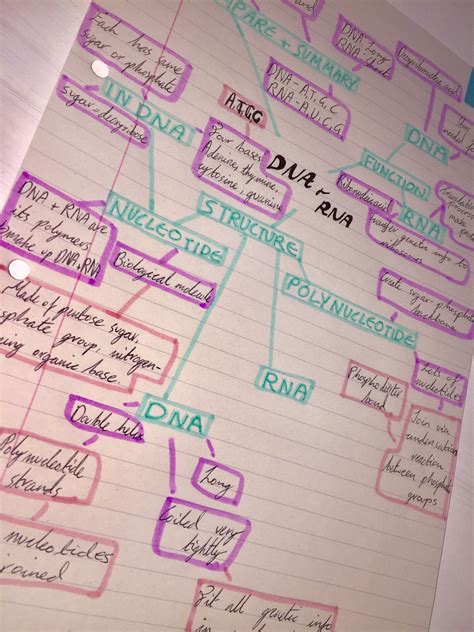 Each has same
sugar or phosphate
COMPARE + SUMMARY
DNA-Long
RNA-
DNA-A,T,G,C
RNA-A,U,C,G
IN DNA
sugar-deoxyribose
A,T,C,G
Four bases:
Adenine, thymine,
cytosine, guanine
DNA +
RNA
DNA
FUNCTION
RNA
Ribonucleic acid
transfer genetic info to
ribosomes
DNA + RNA are
its polymers
make up DNA, RNA
NUCLEOTIDE
STRUCTURE
Biological molecule
POLYNUCLEOTIDE
sugar-phosphate
backbone
Made of pentose sugar,
phosphate group, nitrogen-
organic base.
RNA
Phosphodiester
bond
Lots of
nucleotides
Join via
condensation
reaction
between phosphate
groups
DNA
Double helix
Long
Polynucleotide
strands
Coiled very
tightly
nucleotides
joined
Fit all genetic info